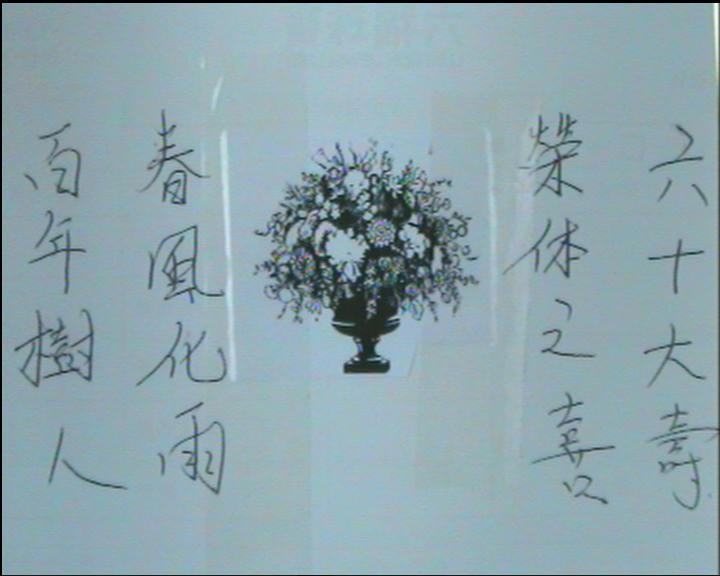 六十大壽
榮休之喜
春風化雨
百年樹人